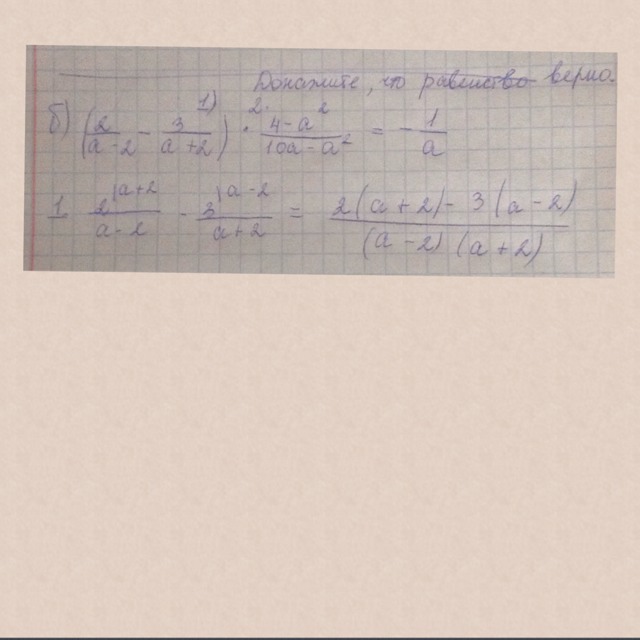 Докажите, что равенство верно.
б) (2/(a-2) - 3/(a+2)) · (4-a²)/(10a-a²) = -1/a
1) 2.
1. 2^{|a+2}/(a-2) - 3^{|a-2}/(a+2) = (2(a+2)-3(a-2))/((a-2)(a+2))